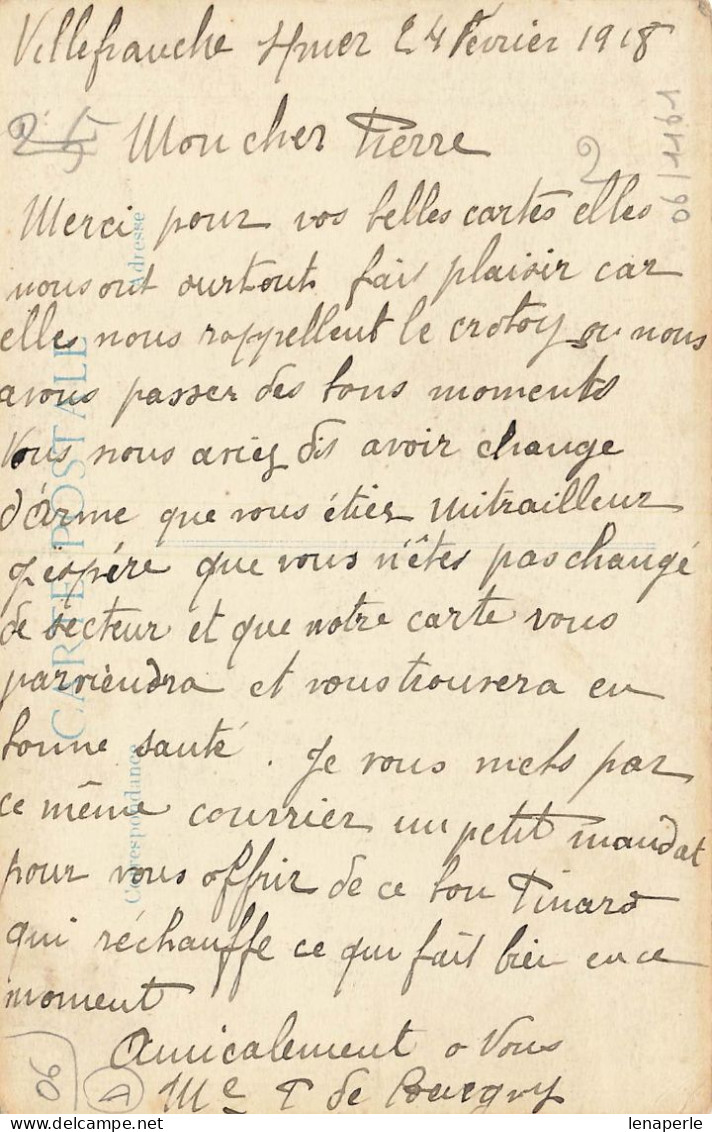 Villefranche s/mer 24 Février 1918
Mon cher Pierre
2
06/1161
Merci pour vos belles cartes elles
nous ont surtout fait plaisir car
elles nous rappellent le crotoy ou nous
avons passer des bons moments
Vous nous aviez dis avoir change
d'Arme que vous étier mitrailleur
J'espére que vous n'êtes pas changé
de secteur et que notre carte vous
parviendra et vous trouvera en
bonne santé. Je vous mets par
ce même courrier un petit mandat
pour vous offrir de ce bon Pinard
qui réchauffe ce qui fait bien en ce
moment
Amicalement a Vous
Me P de
06
A
CARTE POSTALE
Correspondance
Adresse
lenaperle